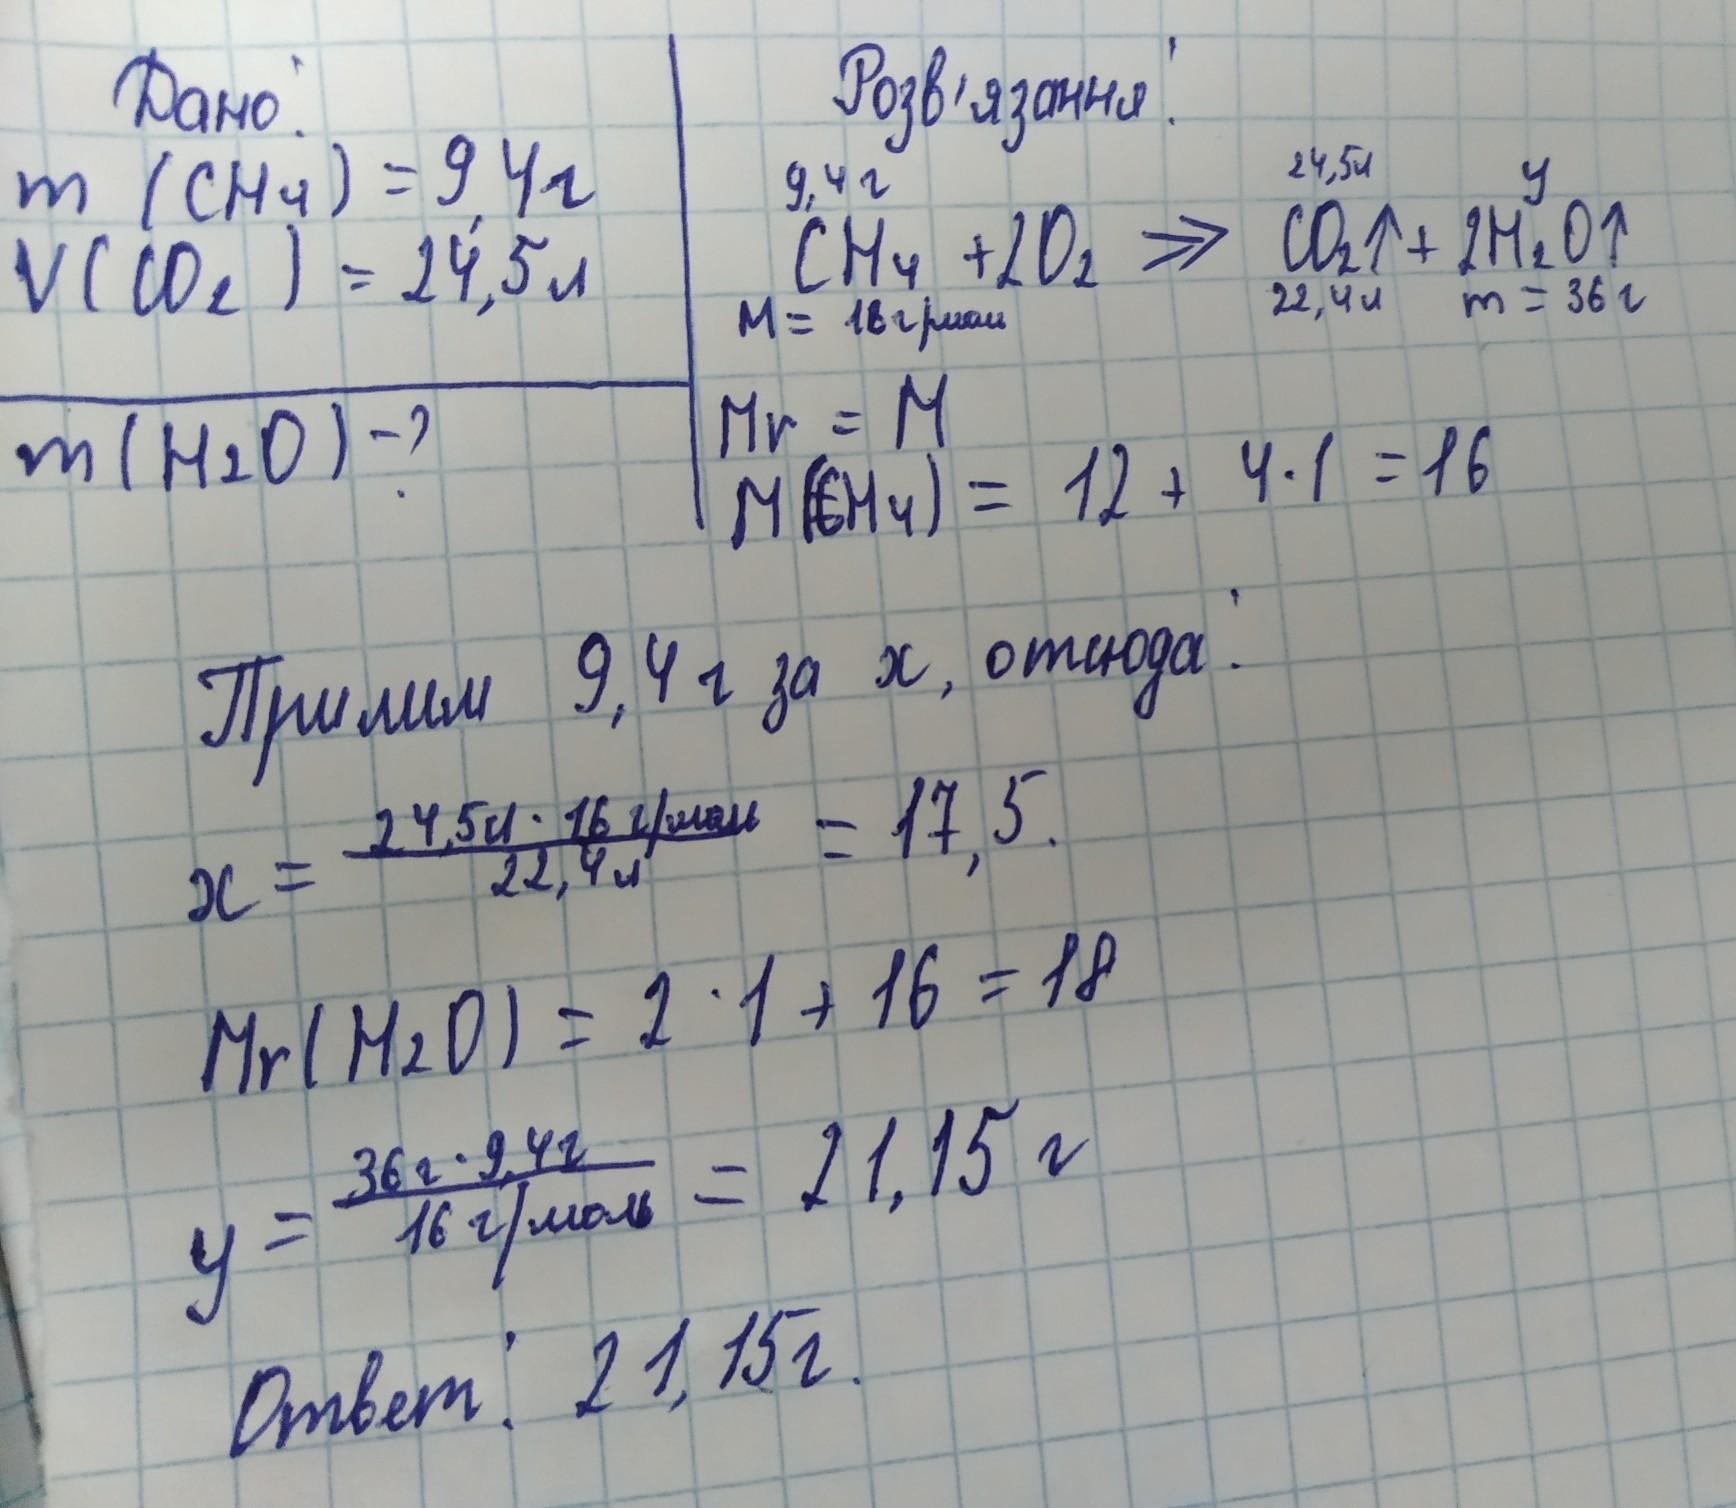 Дано:
m (CH4) = 9,4г
V(CO2) = 24,5л
m(H2O) -?
Розв'язання:
9,4г 24,5л y
CH4 + 2O2 => CO2↑ + 2H2O↑
M = 16г/моль 22,4л m = 36г
Mr = M
M(CH4) = 12 + 4·1 = 16
Примим 9,4г за x, отсюда:
x = 24,5л · 16 г/моль / 22,4л = 17,5.
Mr(H2O) = 2·1 + 16 = 18
y = 36г · 9,4г / 16 г/моль = 21,15 г
Ответ: 21,15г.